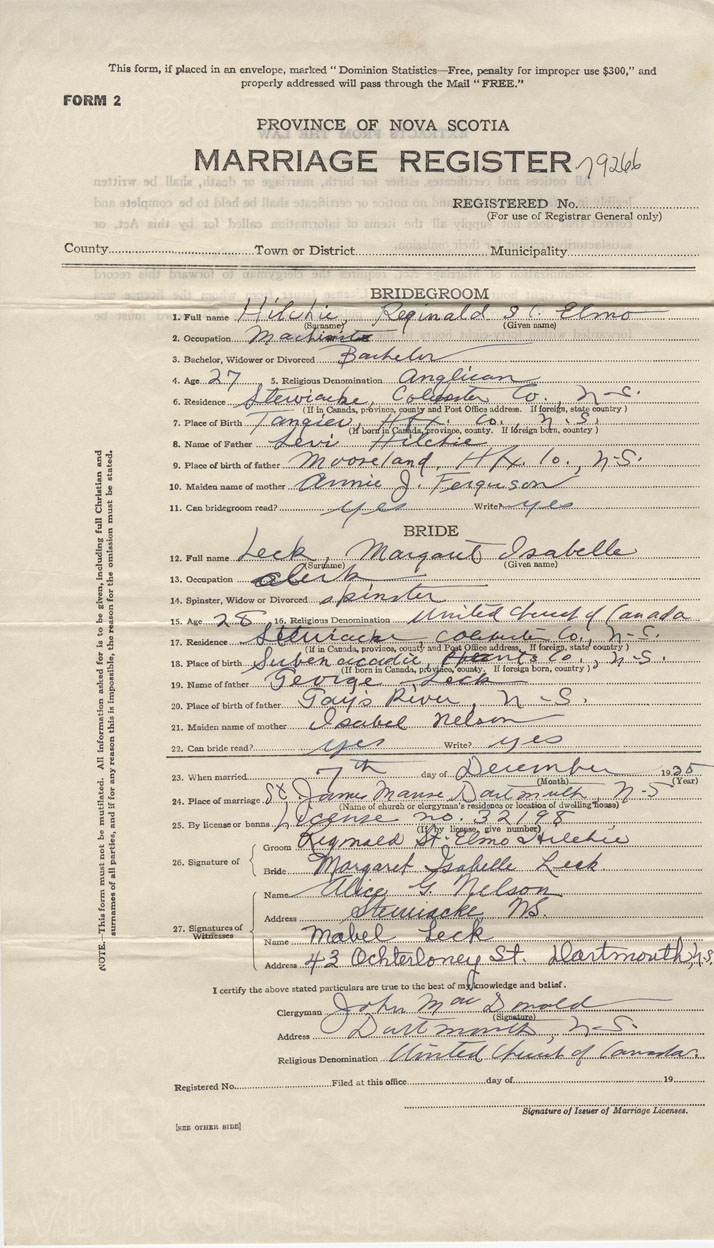 This form, if placed in an envelope, marked "Dominion Statistics—Free, penalty for improper use $300," and
properly addressed will pass through the Mail "FREE."
FORM 2
PROVINCE OF NOVA SCOTIA
MARRIAGE REGISTER 79266
REGISTERED No.
(For use of Registrar General only)
County Town or District Municipality
BRIDEGROOM
1. Full name Hilchie, Reginald St. Elmo
(Surname) (Given name)
2. Occupation Machinist
3. Bachelor, Widower or Divorced Bachelor
4. Age 27 5. Religious Denomination Anglican
6. Residence Stewiacke, Colchester Co., N-S.
(If in Canada, province, county and Post Office address. If foreign, state country)
7. Place of Birth Tangier, Hfx. Co. N.S.
(If born in Canada, province, county. If foreign born, country)
8. Name of Father Levi Hilchie
9. Place of birth of father Mooseland, Hfx. Co., N-S.
10. Maiden name of mother Annie J. Ferguson
11. Can bridegroom read? yes Write? yes
BRIDE
12. Full name Leck, Margaret Isabelle
(Surname) (Given name)
13. Occupation Clerk
14. Spinster, Widow or Divorced spinster
15. Age 28 16. Religious Denomination United Church of Canada
17. Residence Stewiacke, Colchester Co., N-S.
(If in Canada, province, county and Post Office address. If foreign, state country)
18. Place of birth Subenaccadie, Hants Co., N-S.
(If born in Canada, province, county. If foreign born, country)
19. Name of father George Leck
20. Place of birth of father Gay's River, N-S.
21. Maiden name of mother Isabel Nelson
22. Can bride read? yes Write? yes
23. When married 7th day of December 1935
(Month) (Year)
24. Place of marriage St. James Manse Dartmouth, N-S
(Name of church or clergyman's residence or location of dwelling house)
25. By license or banns License no. 32198
(If by license, give number)
26. Signature of
Groom Reginald St. Elmo Hilchie
Bride Margaret Isabelle Leck
27. Signatures of Witnesses
Name Alice G. Nelson
Address Stewiacke NS.
Name Mabel Leck
Address 43 Ochterloney St. Dartmouth, N.S.
I certify the above stated particulars are true to the best of my knowledge and belief.
Clergyman John MacDonald
(Signature)
Address Dartmouth, N-S.
Religious Denomination United Church of Canada.
Registered No. Filed at this office day of 19
Signature of Issuer of Marriage Licenses.
[SEE OTHER SIDE]
NOTE.—This form must not be mutilated. All information asked for is to be given, including full Christian and
surnames of all parties, and if for any reason this is impossible, the reason for the omission must be stated.